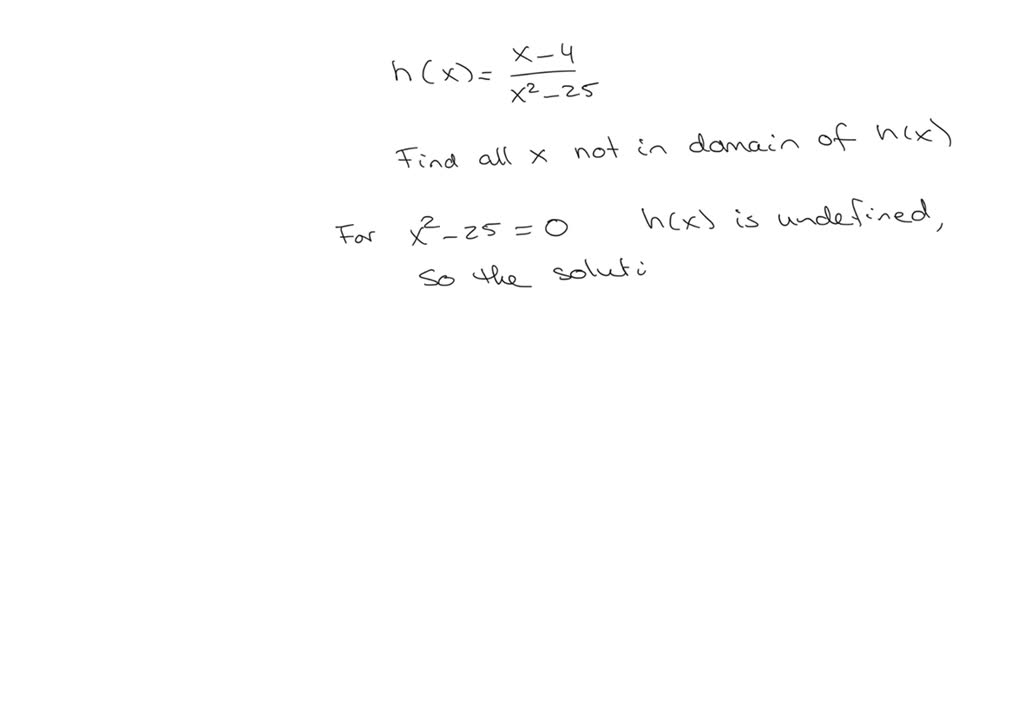 h(x) = x-4 / x²-25
Find all x not in domain of h(x)
For x²-25 = 0 h(x) is undefined,
so the soluti